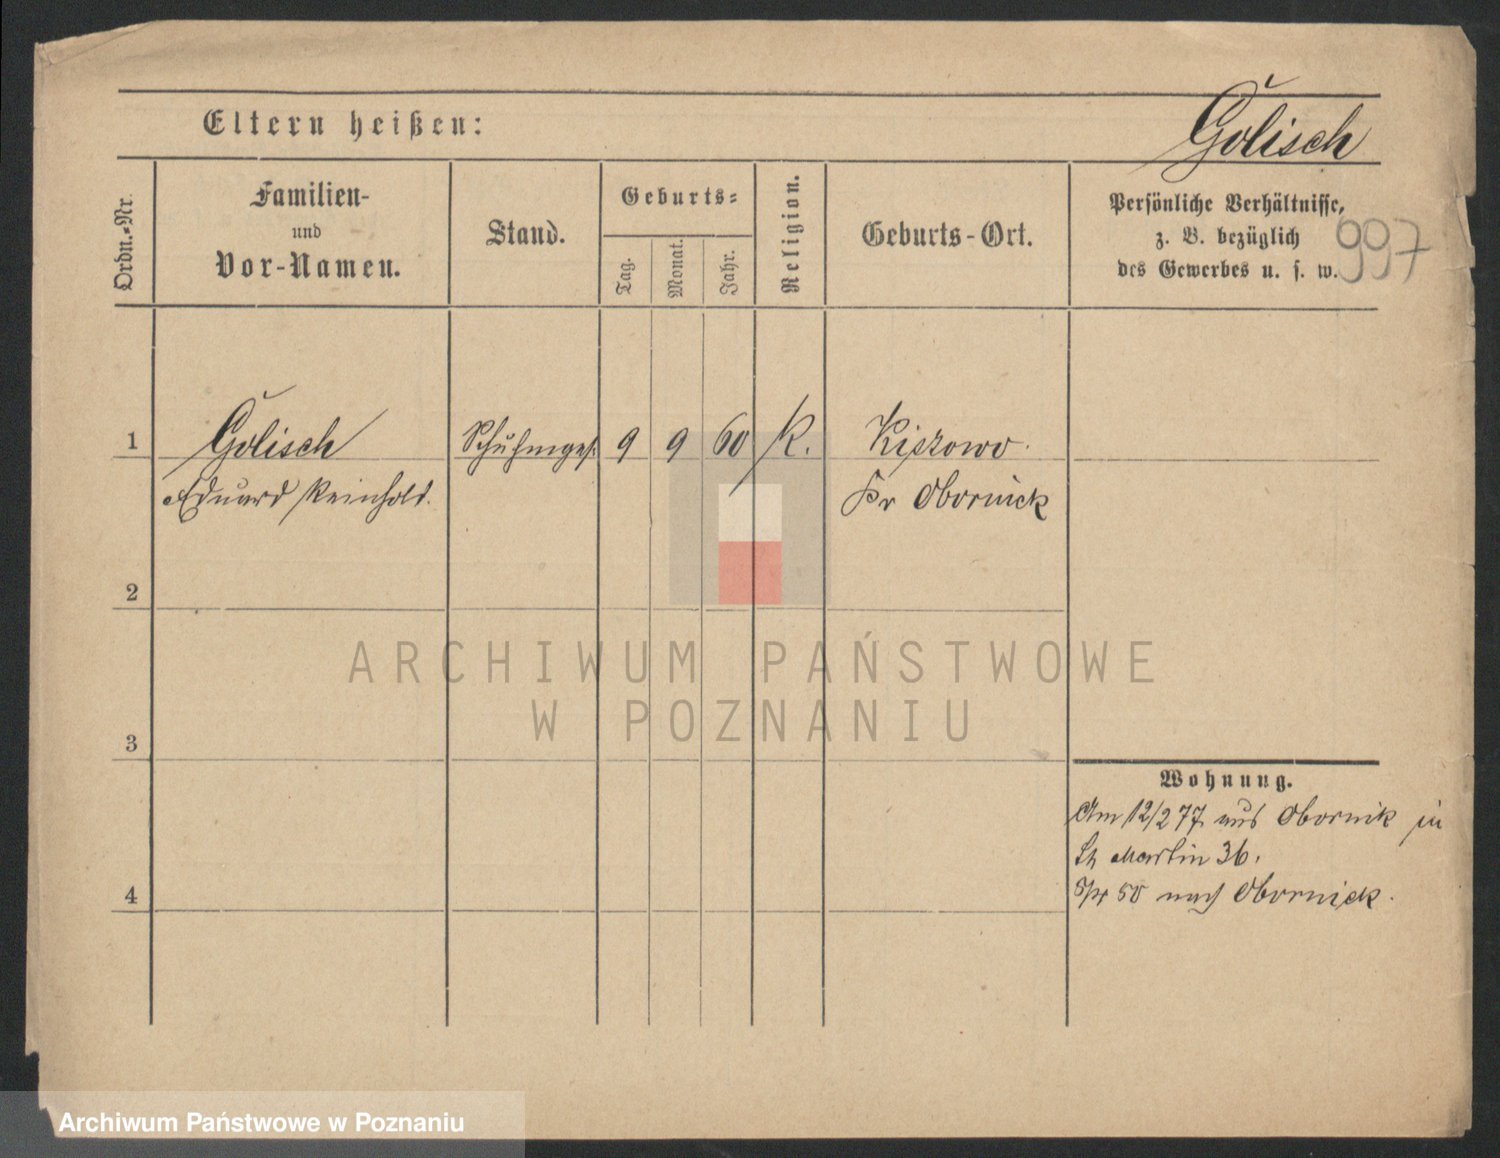 Eltern heißen:
Golisch
Ordn.-Nr.
Familien-
und
Vor-Namen.
Stand.
Geburts-
Tag.
Monat.
Jahr.
Religion.
Geburts-Ort.
Persönliche Verhältnisse,
z. B. bezüglich
des Gewerbes u. s. w.
997
1 Golisch Schuhmges. 9 9 60 K. Kiszowo.
Eduard Reinhold. Kr Obornick
2
ARCHIWUM PAŃSTWOWE
W POZNANIU
3
Wohnung.
Am 12/2 77 aus Obornik in
St Martin 36.
50 nach Obornick.
4
Archiwum Państwowe w Poznaniu